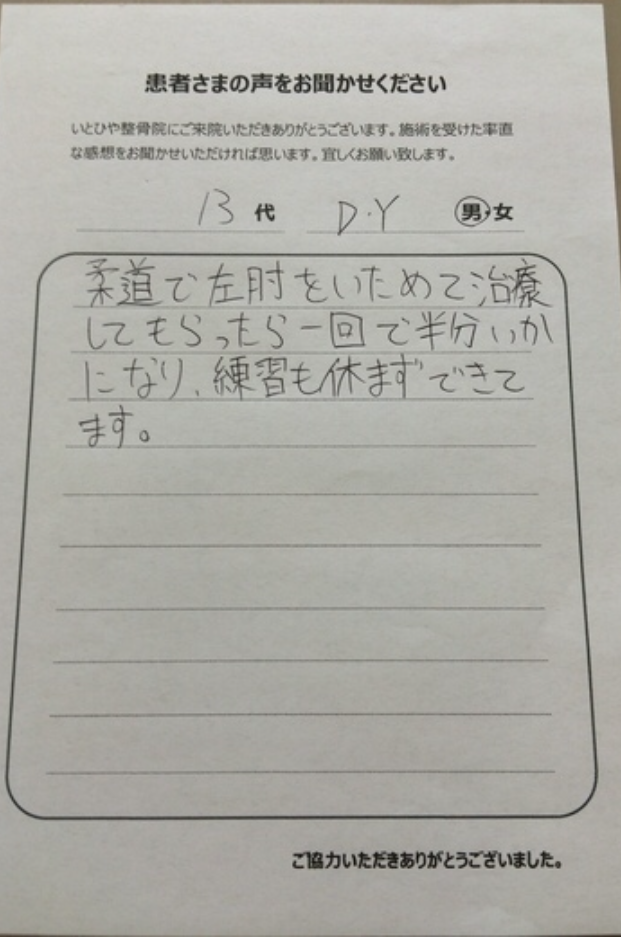 患者さまの声をお聞かせください
いとひや整骨院にご来院いただきありがとうございます。施術を受けた率直
な感想をお聞かせいただければ思います。宜しくお願い致します。
13 代 D.Y 男・女
柔道で左肘をいためて治療
してもらったら一回で半分いか
になり、練習も休まずできて
ます。
ご協力いただきありがとうございました。